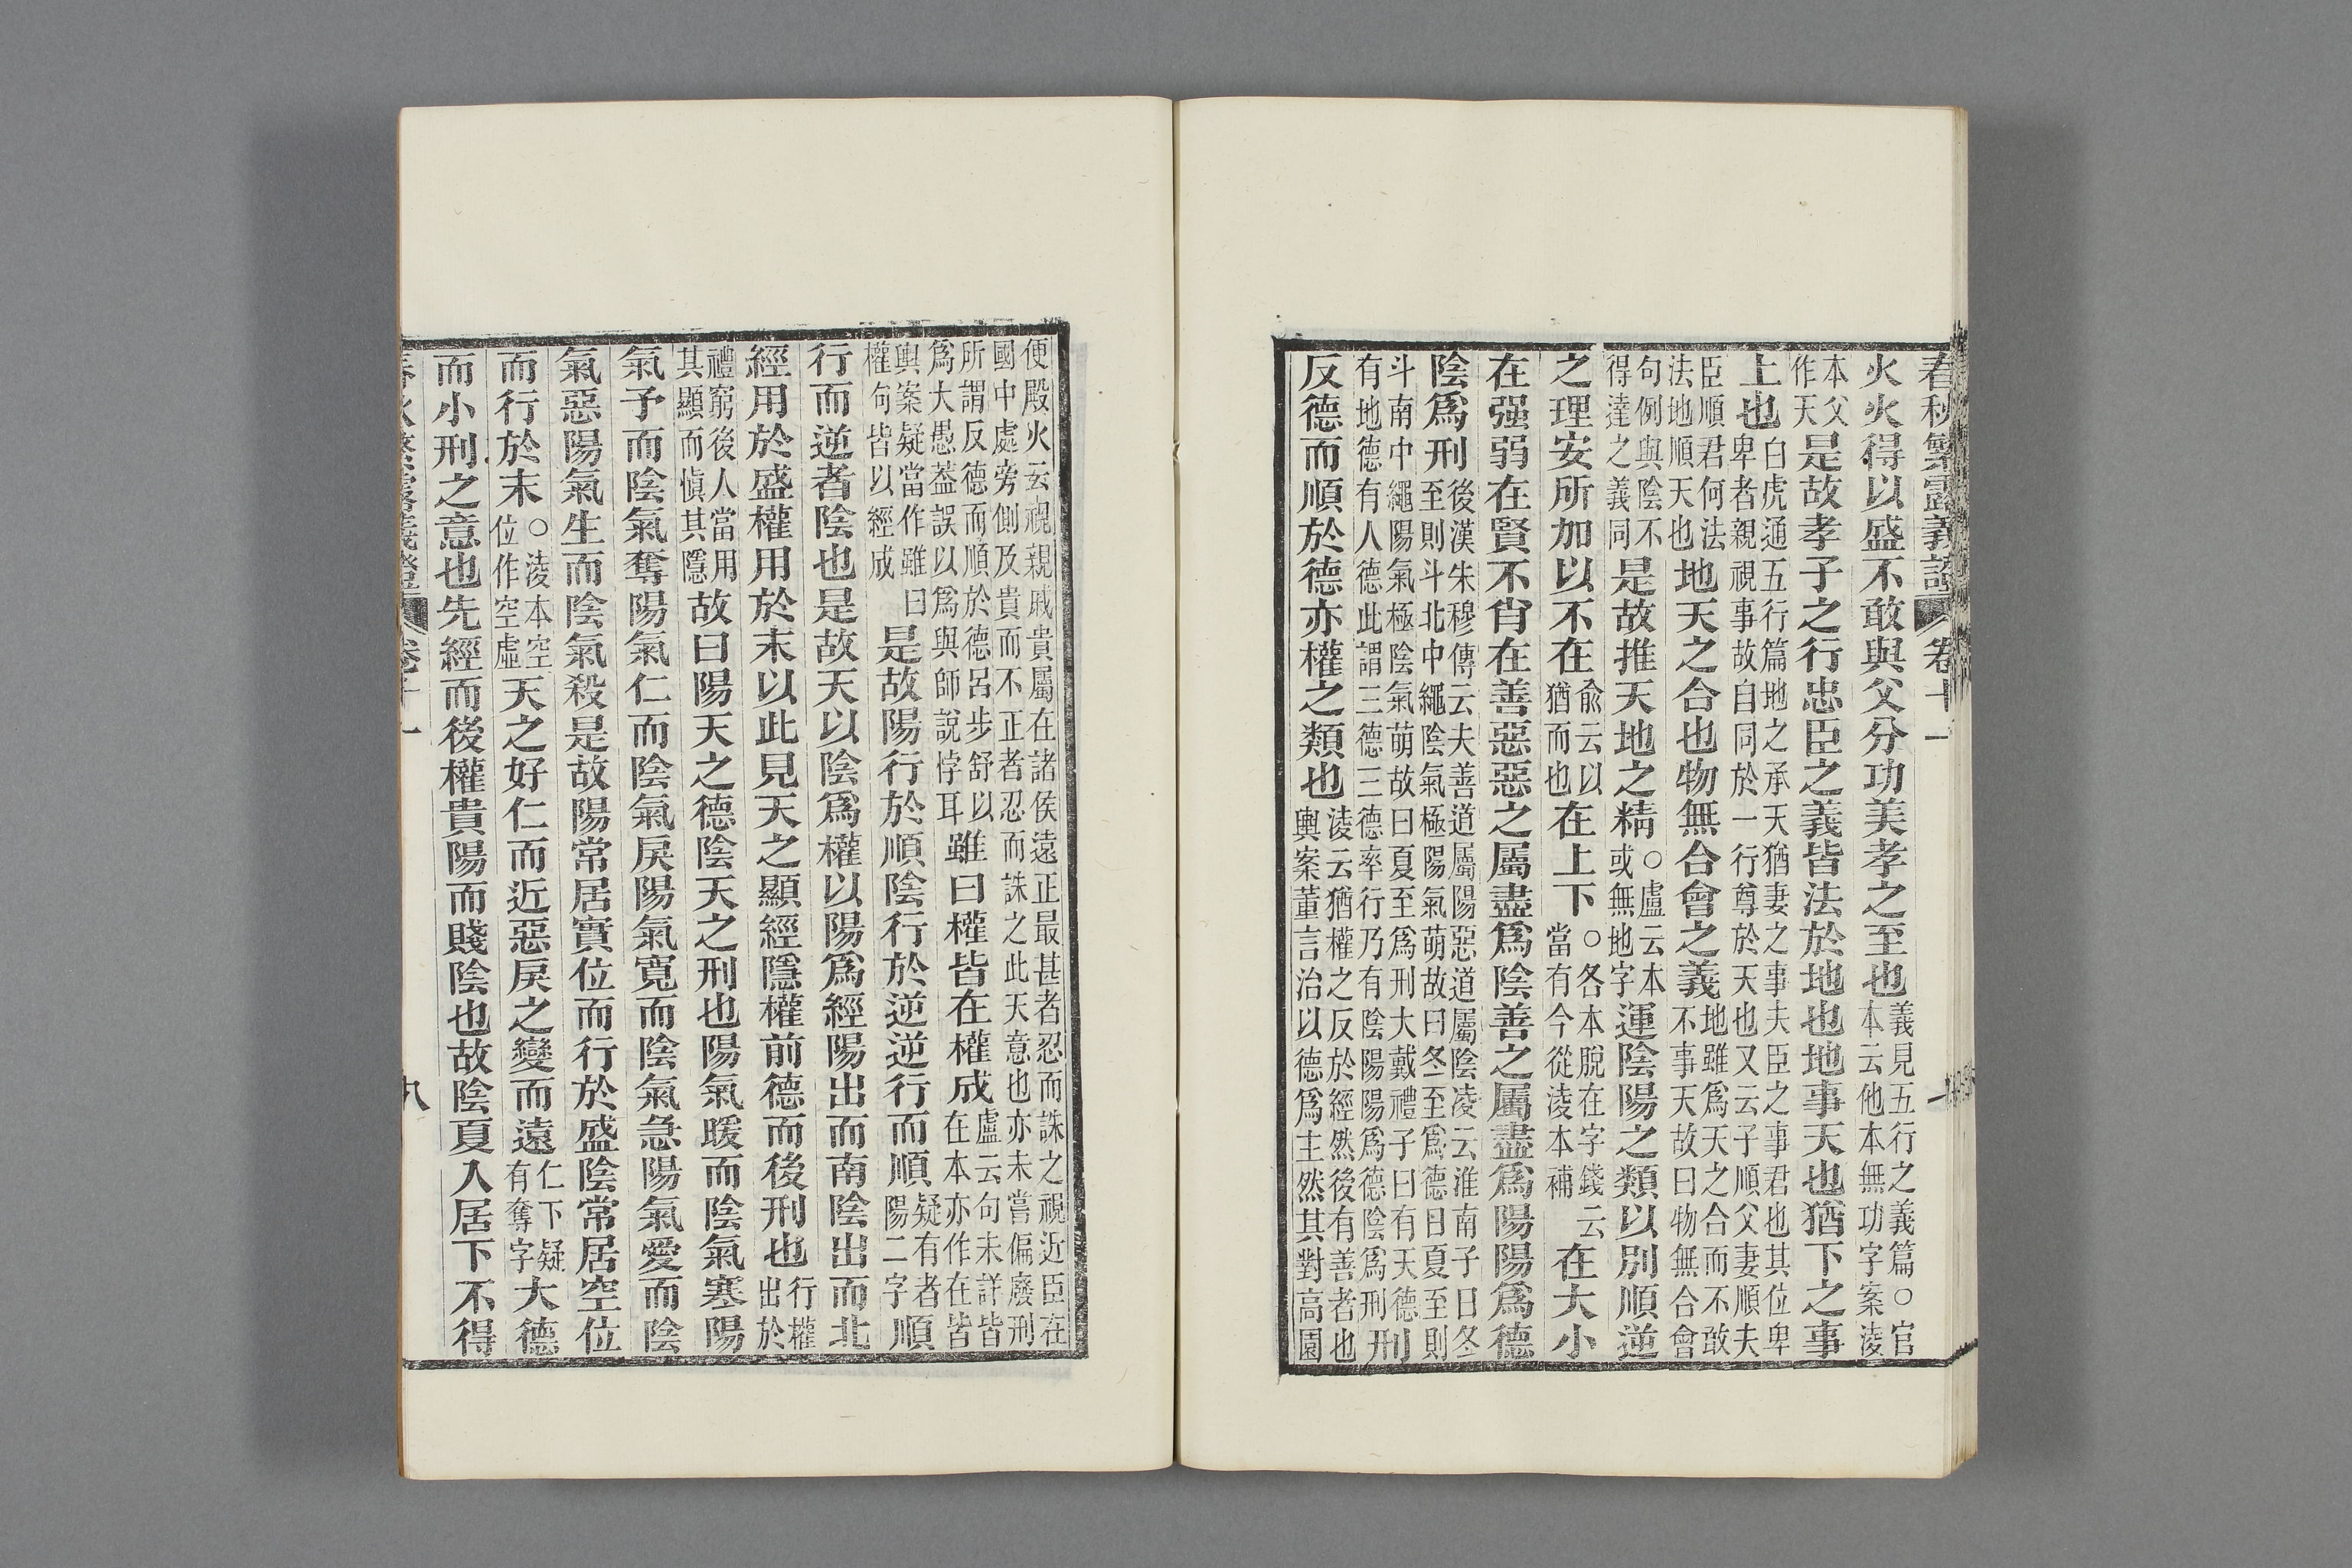 春秋繁露義證 卷十一
火火得以盛不敢與父分功美孝之至也義見五行之義篇○官本云他本無功字案淩
本父作天是故孝子之行忠臣之義皆法於地也地事天也猶下之事
上也白虎通五行篇地之承天猶妻之事夫臣之事君也其位卑卑者親視事故自同於一行尊於天也又云子順父妻順夫
臣順君何法法地順天也地天之合也物無合會之義地雖爲天之合而不敢不事天故曰物無合會
句例與陰不得達之義同是故推天地之精○盧云本或無地字運陰陽之類以別順逆
之理安所加以不在兪云以猶而也在上下○各本脫在字錢云當有今從淩本補在大小
在强弱在賢不肖在善惡惡之屬盡爲陰善之屬盡爲陽陽爲德
陰爲刑後漢朱穆傳云夫善道屬陽惡道屬陰凌云淮南子日冬至則斗北中繩陰氣極陽氣萌故曰冬至爲德日夏至則
斗南中繩陽氣極陰氣萌故曰夏至爲刑大戴禮子曰有天德有地德有人德此謂三德三德率行乃有陰陽陽爲德陰爲刑刑
反德而順於德亦權之類也淩云猶權之反於經然後有善者也輿案董言治以德爲主然其對高園
便殿火云視親戚貴屬在諸侯遠正最甚者忍而誅之視近臣在國中處旁側及貴而不正者忍而誅之此天意也亦未嘗偏廢刑
所謂反德而順於德呂步舒以爲大愚葢誤以爲與師說悖耳雖曰權皆在權成盧云句未詳皆在本亦作在皆
輿案疑當作雖曰權句皆以經成是故陽行於順陰行於逆逆行而順疑有者陽二字順
行而逆者陰也是故天以陰爲權以陽爲經陽出而南陰出而北
經用於盛權用於末以此見天之顯經隱權前德而後刑也行權出於
禮窮後人當用其顯而愼其隱故曰陽天之德陰天之刑也陽氣暖而陰氣寒陽
氣予而陰氣奪陽氣仁而陰氣戾陽氣寬而陰氣急陽氣愛而陰
氣惡陽氣生而陰氣殺是故陽常居實位而行於盛陰常居空位
而行於末○淩本空位作空虛天之好仁而近惡戾之變而遠仁下疑有奪字大德
而小刑之意也先經而後權貴陽而賤陰也故陰夏入居下不得
春秋繁露義證 卷十一 八